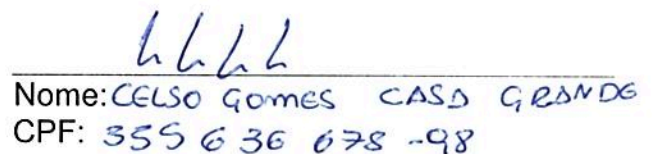 Nome: CELSO GOMES CASA GRANDE
CPF: 355 636 678 -98